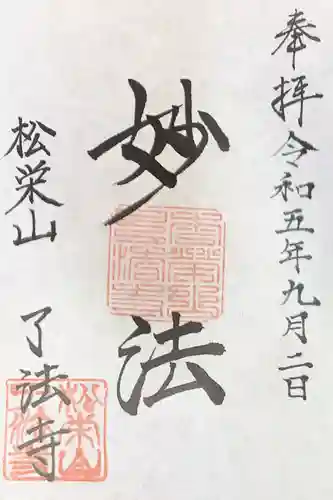 奉拝 令和五年九月二日
妙法
松栄山
了法寺